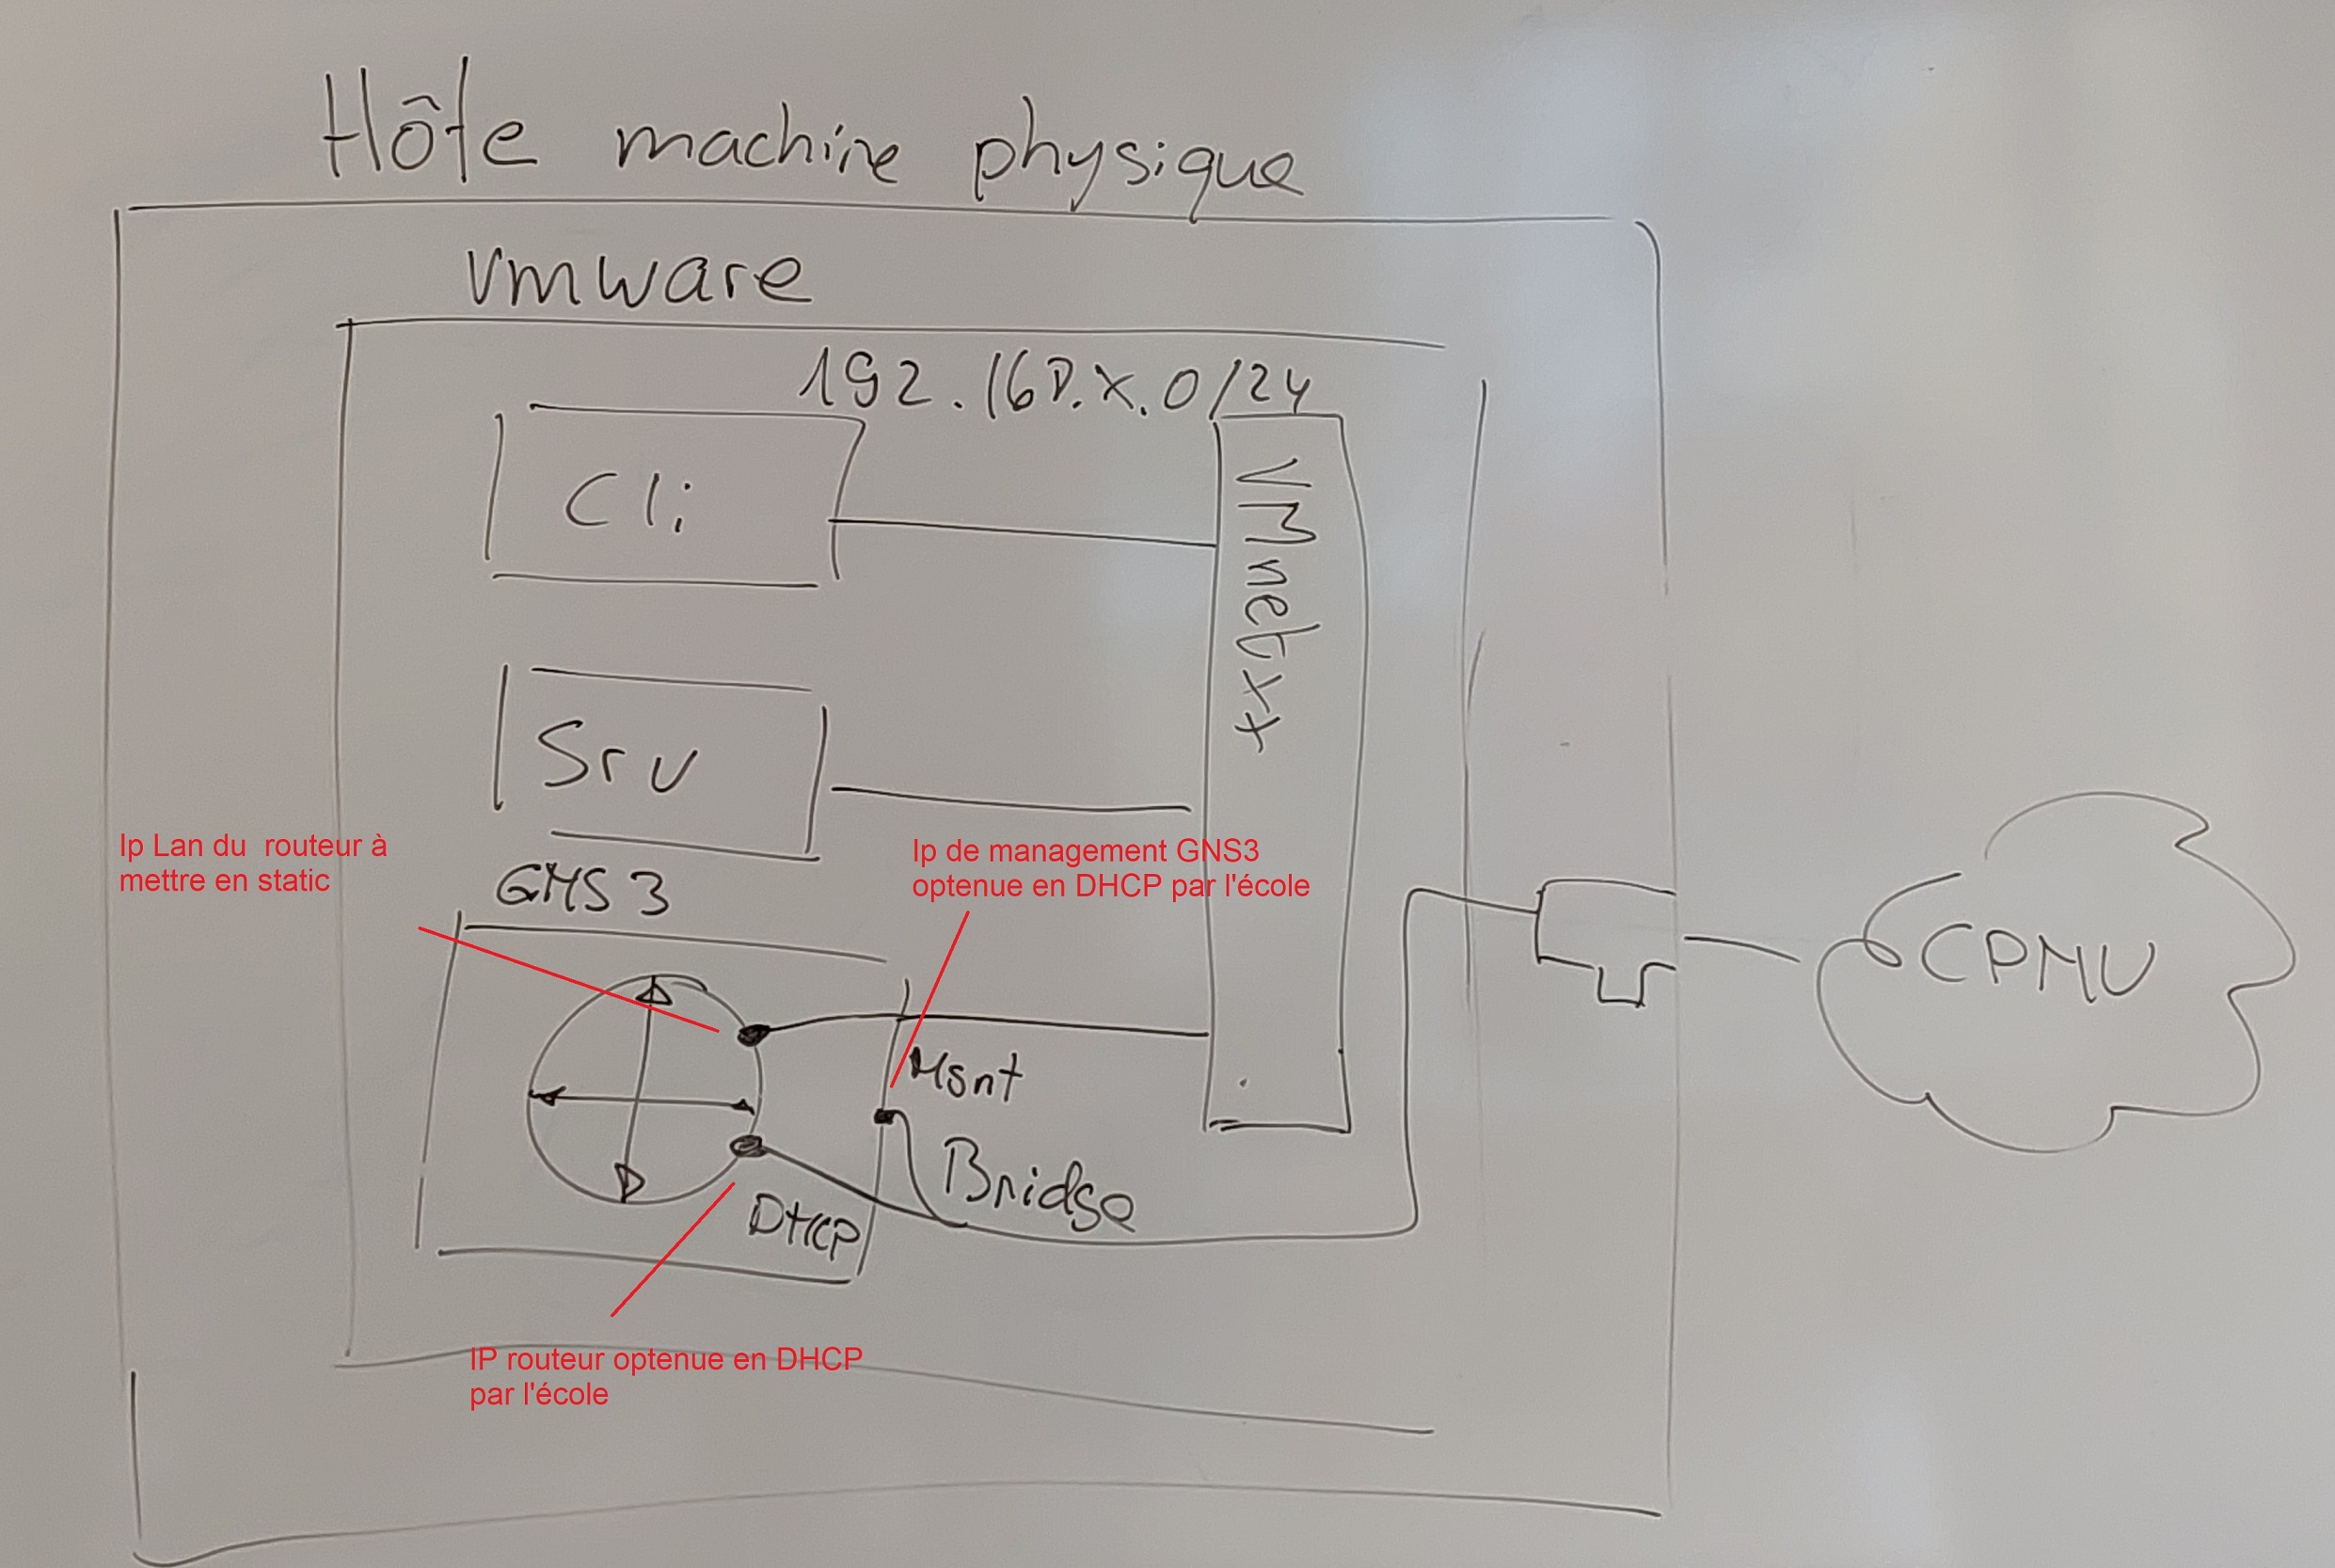 Hôte machine physique
vmware
192.168.x.0/24
Cli
VMnetxx
Srv
Ip Lan du  routeur à
mettre en static
Ip de management GNS3
optenue en DHCP par l'école
GNS3
CPMV
Mgnt
Bridge
DHCP
IP routeur optenue en DHCP
par l'école